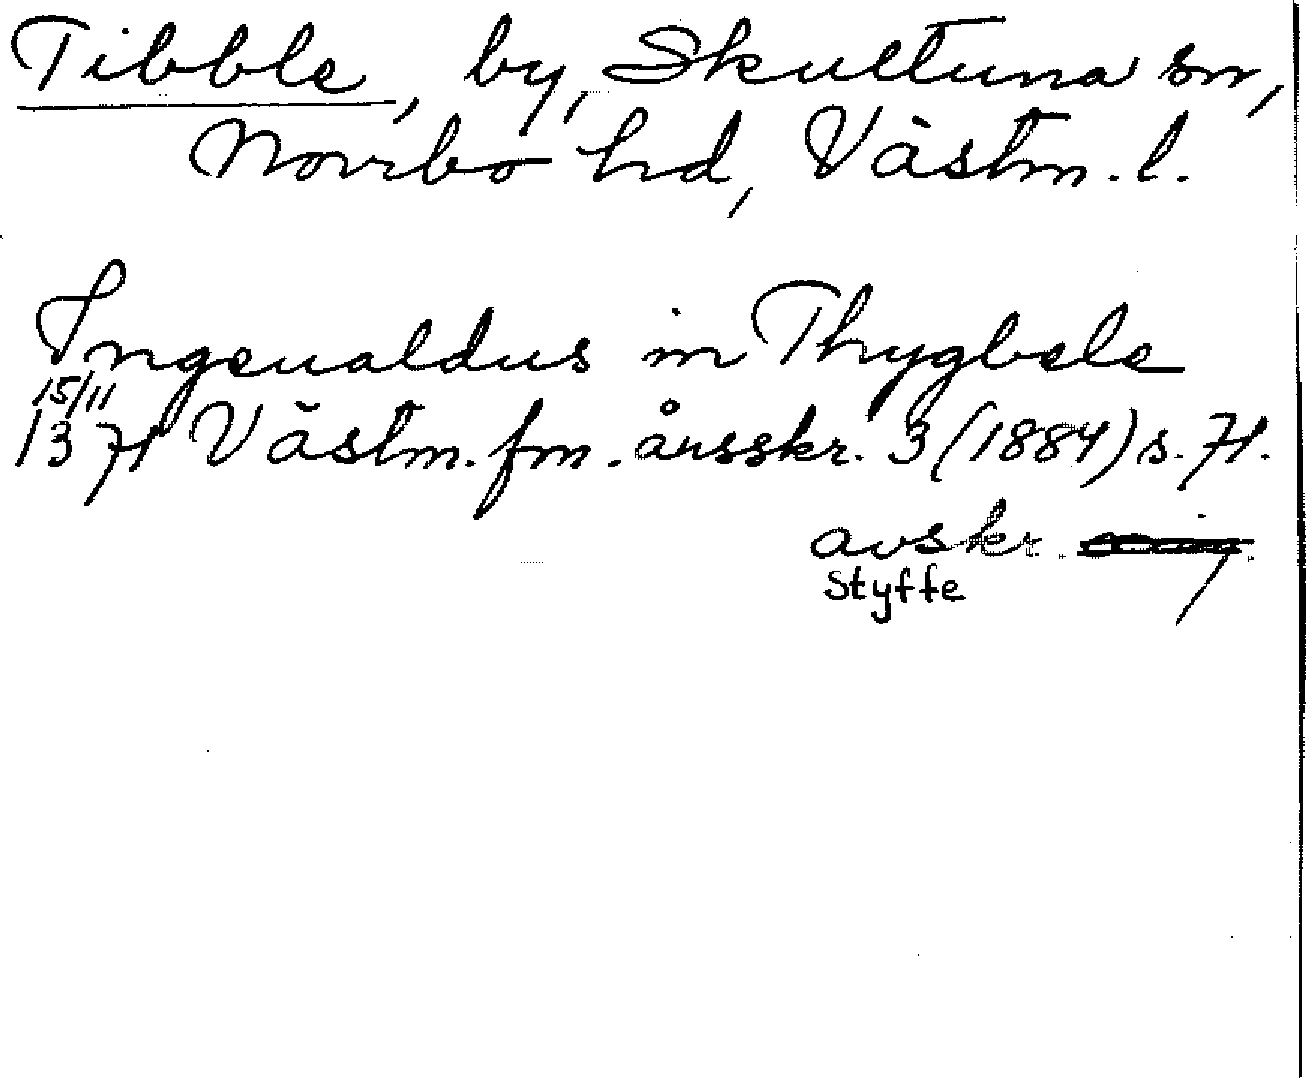 Tibble, by, Skultuna sn,
Norrbo hd, Västm. l.
Ingeualdus in Thygbele
15/11
1371 Västm. fm. årsskr. 3 (1884) s. 71.
avskr.
Styffe